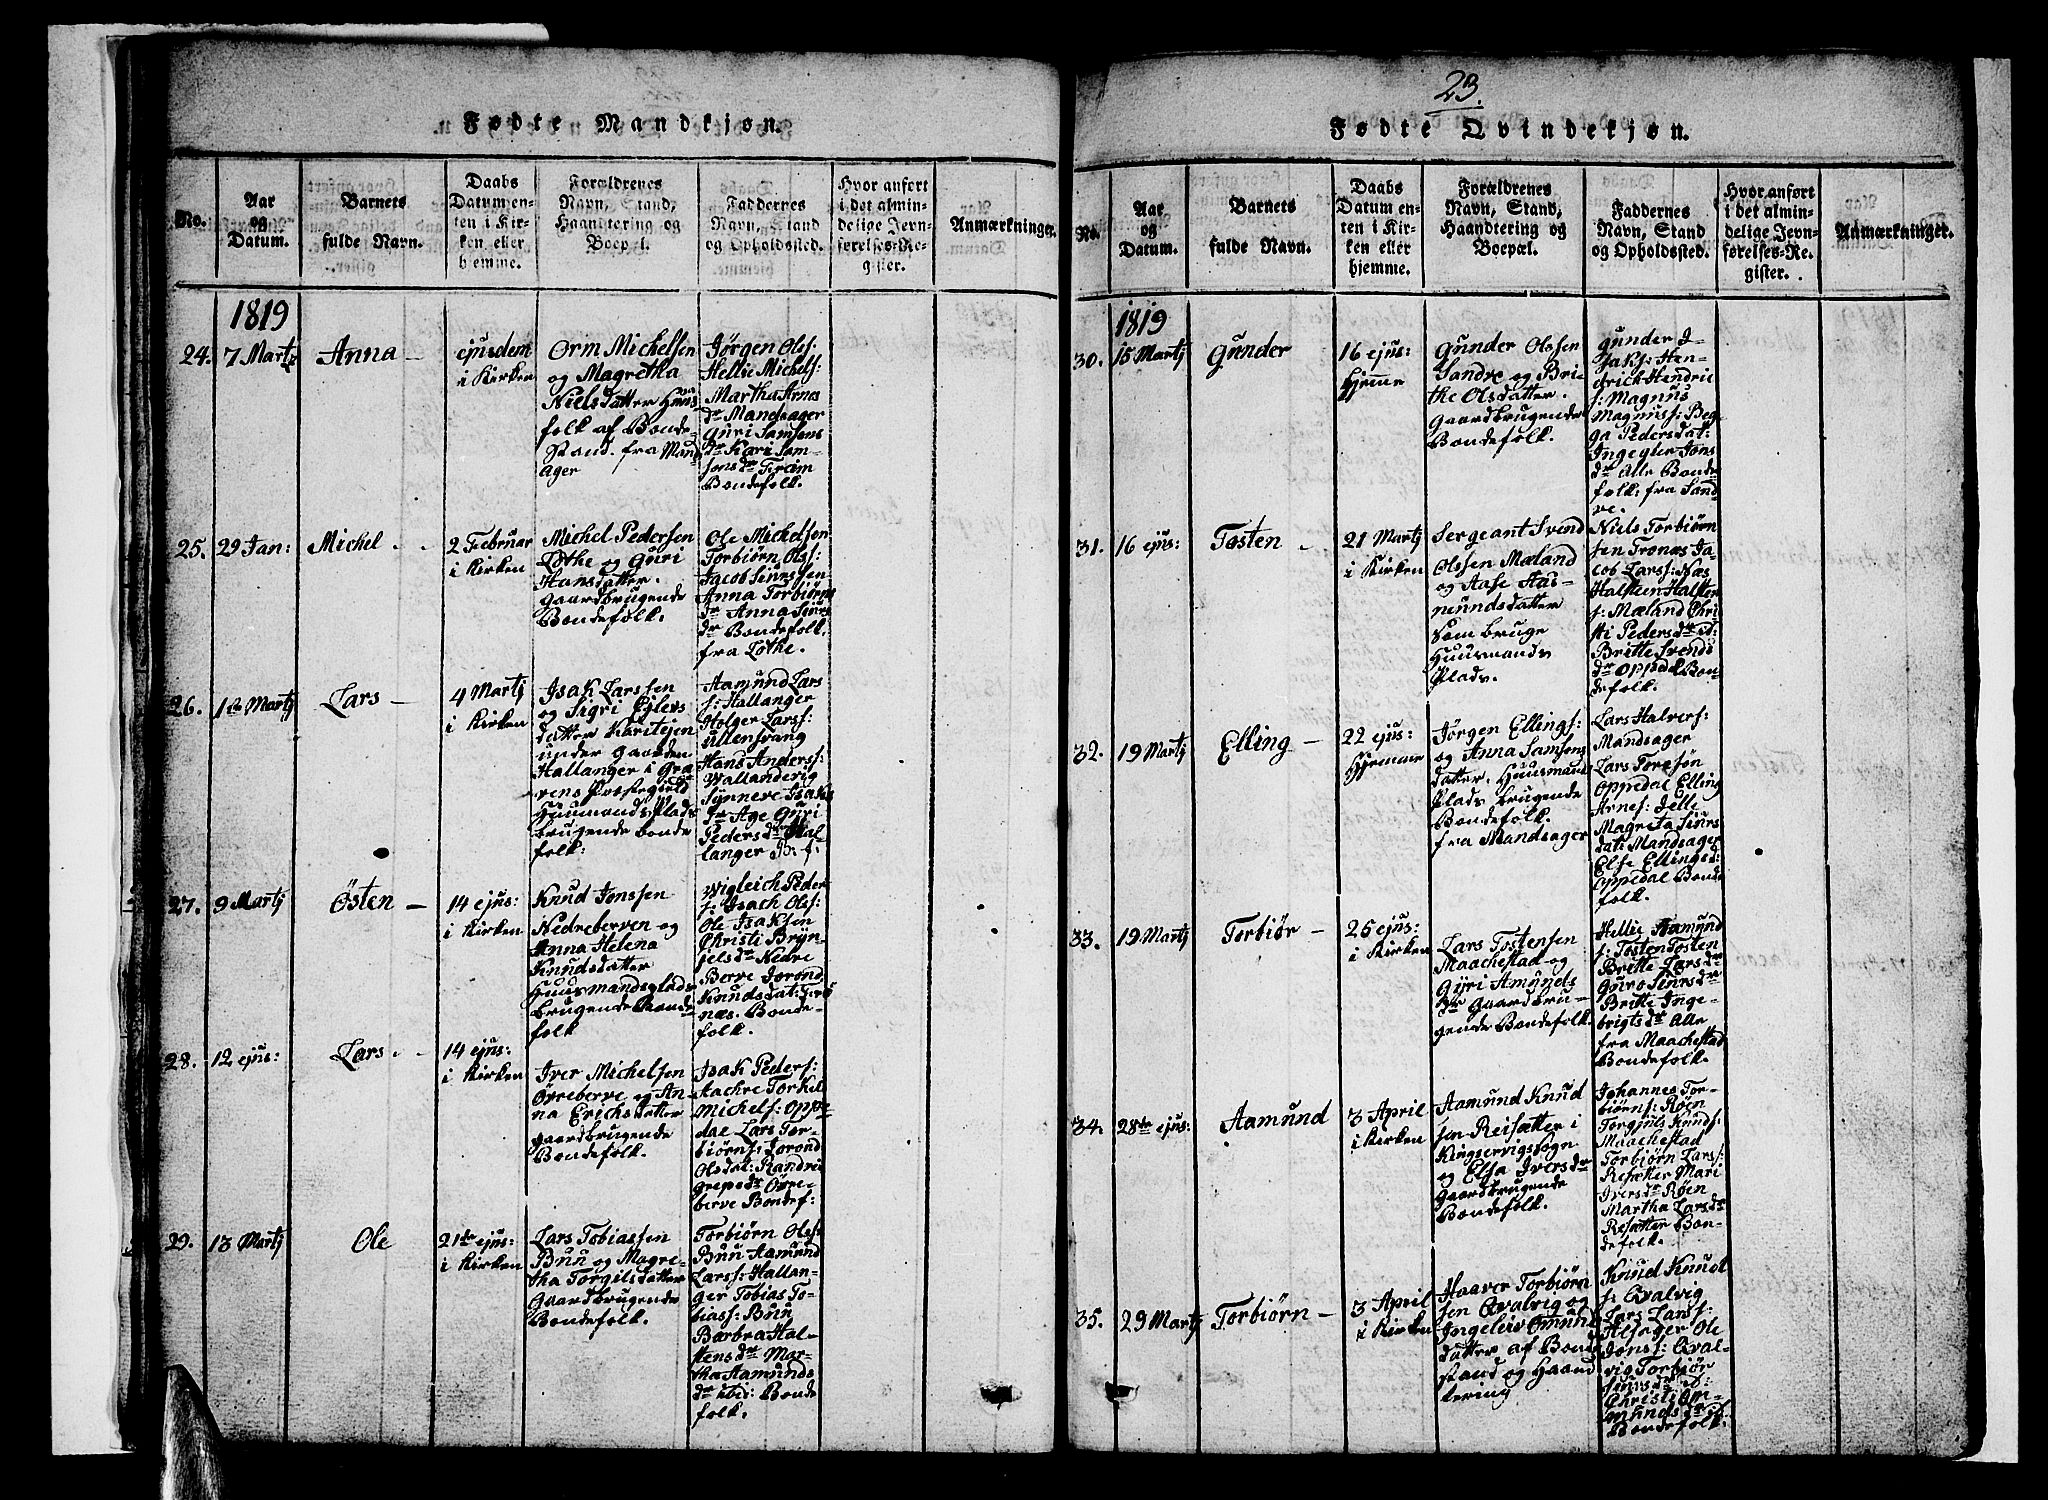 Fødte Mandkjøn.
No.
Aar
og
Datum.
Barnets
fulde Navn.
Daabs
Datum en-
ten i Kir-
ken eller
hjemme.
Forældrenes
Navn, Stand,
Haandtering og
Boepæl.
Faddernes
Navn, Stand
og Opholdssted.
Hvor anført
i det almin-
delige Jevn-
førelses-Re-
gister.
Anmærkninger.
1819
24. 7 Martj
Anna
ejusdem
i Kirken
Orm Michelsen
og Magretha
Nielsdatter Huus
folk af Bonde-
Stand. fra Mand
ager
Jørgen Ols:
Hellie Michels:
Martha Arnes
dr Mandsager
Guri Samsons
dr Kari Sam-
sonsdr
Bondefolk.
25. 29 Jan:
Michel
2 Februar
i Kirken
Michel Pedersen
Lothe og Guri
Hansdatter.
Gaardbrugende
Bondefolk.
Ole Michelsen
Torbiørn Ols:
Jacob
Anna Torbiørns
dr Anna Siurs
dr Bondefolk.
fra Lothe.
26. 1ste Martj
Lars
4 Martj
i Kirken
Isak Larssen
og Sigri Ejlers
datter
under Gaarden
Hallanger i Gra-
vens Præstegield
Huusmands Plads
brugende Bonde
folk:
Aamund Lars
s: Hallanger
Holger Lars:
Ullensvang
Hans Anders:
Wallandvig
Synneve Isaks
dr Age Guri
Pedersdr Hal
langer B: f:
27. 9 Martj
Østen
14 ejus:
i Kirken
Knud Jonssen
Nedreberven og
Anna Helena
Knudsdatter
Huusmandsplads
brugende Bonde
folk
Wigleich Peder
s: Isach Ols:
Ole Isaksen
Christi Bryn-
jelsdr Nedre
Berve Jorond
Knudsdat:
næs. Bonde-
folk.
28. 12 ejus:
Lars
14 ejus:
i Kirken
Iver Michelsen
Øvreberve og An-
na Erichsdatter
gaardbrugende
Bondefolk.
Isak Peders:
Aachre Torkel
Michels: Oppe
dal Lars Tor-
biørns: Jorond
Olsdat: Randvi
Grepsdr Øvre-
berve Bondef:
29. 13 Martj
Ole
21de ejus:
i Kirken
Lars Tobiassen
Buu og Magre-
tha Torgilsdatter
Gaardbrugende
Bondefolk.
Torbiørn Ols:
Buu Aamund
Lars: Hallan-
ger Tobias To-
bias: Buu
Barbra Hal-
stensdr Mar-
tha Aamunds
dr ibid: Bonde
folk.
23.
Fødte Qvindekjøn.
No.
Aar
og
Datum.
Barnets
fulde Navn.
Daabs
Datum en-
ten i Kir-
ken eller
hjemme.
Forældrenes
Navn, Stand,
Haandtering og
Boepæl.
Faddernes
Navn, Stand
og Opholdssted.
Hvor anført
i det almin-
delige Jevn-
førelses-Re-
gister.
Anmærkninger.
1819
30. 15 Martj
Gunder
16 ejus:
hjemme
Gunder Olssen
Sandve og Bri-
the Olsdatter.
Gaardbrugende
Bondefolk.
Gunder I-
saks: Hen-
drich Hendric
s: Magnus
Magnus: Beg
ga Pedersdat:
Ingegler Jons
dr alle Bonde
folk: fra Sand
ve.
31. 16 ejus:
Tosten
21 Martj
i Kirken
Sergeant Svend
Olssen Mæland
og Aase Aa-
mundsdatter
som bruge
Huusmands
Plads.
Niels Torbiørn
sen Tronæs Ja-
cob Lars: Næs
Halsten Halsten
s: Mæland Chri
sti Pedersdr ib:
Britte Svends
dr Oppedal Bon-
defolk.
32. 19 Martj
Elling
22 ejus:
Hjemme
Jørgen Ellings:
og Anna Samsons
datter. Huusmand
Plads brugende
Bondefolk.
fra Mandsager
Lars Halvers:
Mandsager
Lars Toresøn
Oppedal Elling
Arnes: Jelle
Magreta Siurs
dat: Mandsager
Else Ellingsd:
Oppedal Bonde
folk.
33. 19 Martj
Torbiør
25 ejus:
i Kirken
Lars Tostensen
Maachestad og
Gyri Amunds
dr Gaardbru-
gende Bondefolk.
Hellie Aamund
s: Tosten Tosten
Britte Larsdr
Guro Siursdr
Britte Inge-
brigtsdr Alle
fra Maachestad
Bondefolk.
34. 28de ejus:
Aamund
3 April
i Kirken
Aamund Knud
sen Reisætter i
Kingservigs Sogn
og Elsa Iversdr
Gaardbrugende
Bondefolk.
Johannes Tor-
biørns: Røen
Torgiuls Knuds:
Maachestad
Torbiørn Lars:
Resætter Mari
Iversdr Røen
Martha Larsdr
Resætter Bon-
defolk.
35. 29 Martj
Torbiørn
3 April
i Kirken
Haaver Torbiørn
sen Qvalvig og
Ingeleiv Omund
datter af Bonde
stand og Haand
tering
Knud Knud
s: Qvalvig
Lars Lars:
Ole
Jons: Qval-
vig Torbiør
Siursdr ib:
Christi Om-
mundsdr ib
Bondefolk.